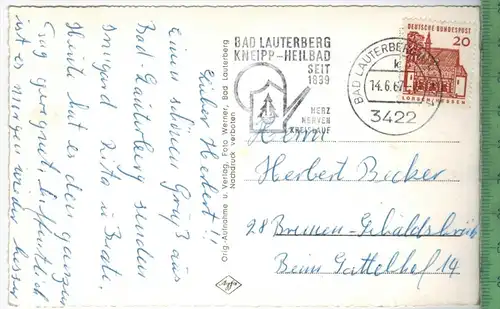 Lieber Herbert!!
Einen schönen Gruß aus
Bad Lauterberg senden
Irmgard Rita u Beate.
Heute hat es den ganzen
Tag geregnet, hoffentlich
ist es morgen wieder besser
Orig.-Aufnahme u. Verlag, Foto Werner, Bad Lauterberg
Nachdruck verboten
Agfa
BAD LAUTERBERG
KNEIPP-HEILBAD
SEIT
1839
HERZ
NERVEN
KREISLAUF
BAD LAUTERBERG
14.6.67
3422
DEUTSCHE BUNDESPOST
20
LORSCH/HESSEN
Herrn
Herbert Bicker
28 Bremen-
Beim 14